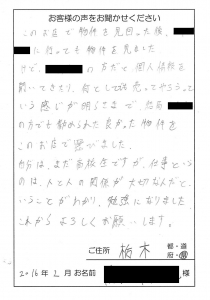 お客様の声をお聞かせください
このお店で物件を見回った後、
に行っても物件を見ました
の方だと個人情報を
聞いてきたり、何としても売ってやろうって
いう感じが明らさまで、結局
の方でも勧められた良かった物件を
このお店で選べました。
自分は、まだ高校生ですが、仕事という
のは、人と人の関係が大切なんだと
いうことがわかり、勉強になりました
これからよろしくお願いします。
ご住所 栃木 都・道
府・県
2016年2月 お名前 様